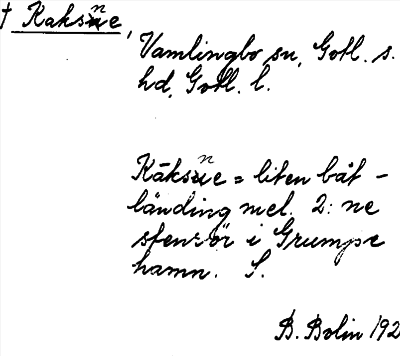 † Kaksne,
Vamlingbo sn, Gotl. s.
hd, Gotl. l.
Kaksne = liten båt-
länding mel. 2: ne
stenrör i Grumpe
hamn. S.
B. Bolin 192